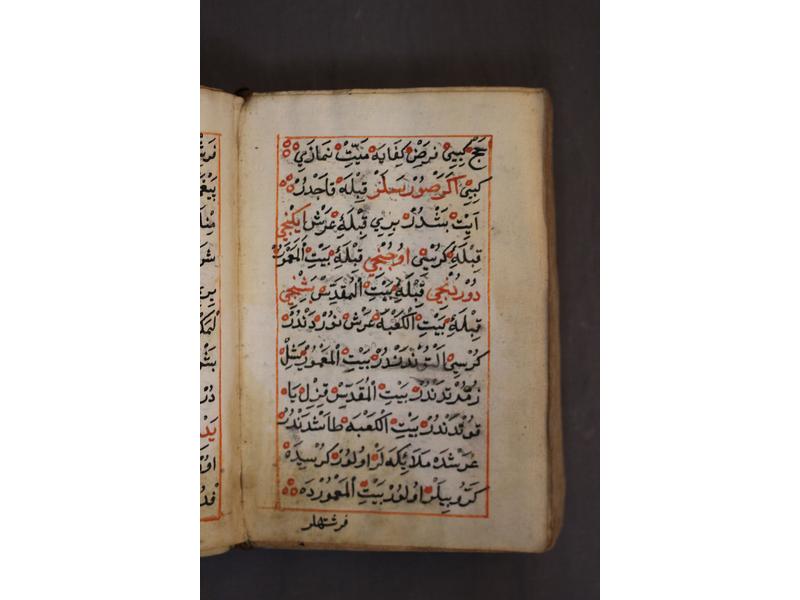 حَجّ كِبِي فَرَضِ كِفَايَه مَيِّتْ نَمَازِي
كِبِي اَكَرْ صُورْسَلَرْ قِبْلَه قَاجْدُرْ
اَيِتْ بَشْدُرْ بِرِي قِبْلَهٔ عَرَشْ اِيكِنْجِي
قِبْلَهٔ كُرْسِي اُوجُنْجِي قِبْلَهٔ بَيْتِ الْمَعْمُورْ
دُورْدُنْجِي قِبْلَهٔ بَيْتِ الْمُقَدَّسْ بَشِنْجِي
قِبْلَهٔ بَيْتِ الْكَعْبَه عَرَشْ نُورْدَنْدُرْ
كُرْسِي اَلْتُونْدَنْدُرْ بَيْتِ الْمَعْمُورْ يَشِلْ
زُمُرُّدْدَنْدُرْ بَيْتِ الْمُقَدَّسْ قِزِلْ يَا
قُوتْدَنْدُرْ بَيْتِ الْكَعْبَه طَاشْدَنْدُرْ
عَرَشْدَه مَلَائِكَه لَرْ اُولُورْ كُرْسِيدَه
كَرُّوبِيلَرْ اُولُورْ بَيْتِ الْمَعْمُورْدَه
فرشتهلر